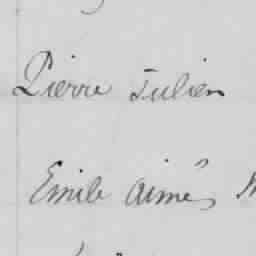 Pierre Julien
Emile aimé